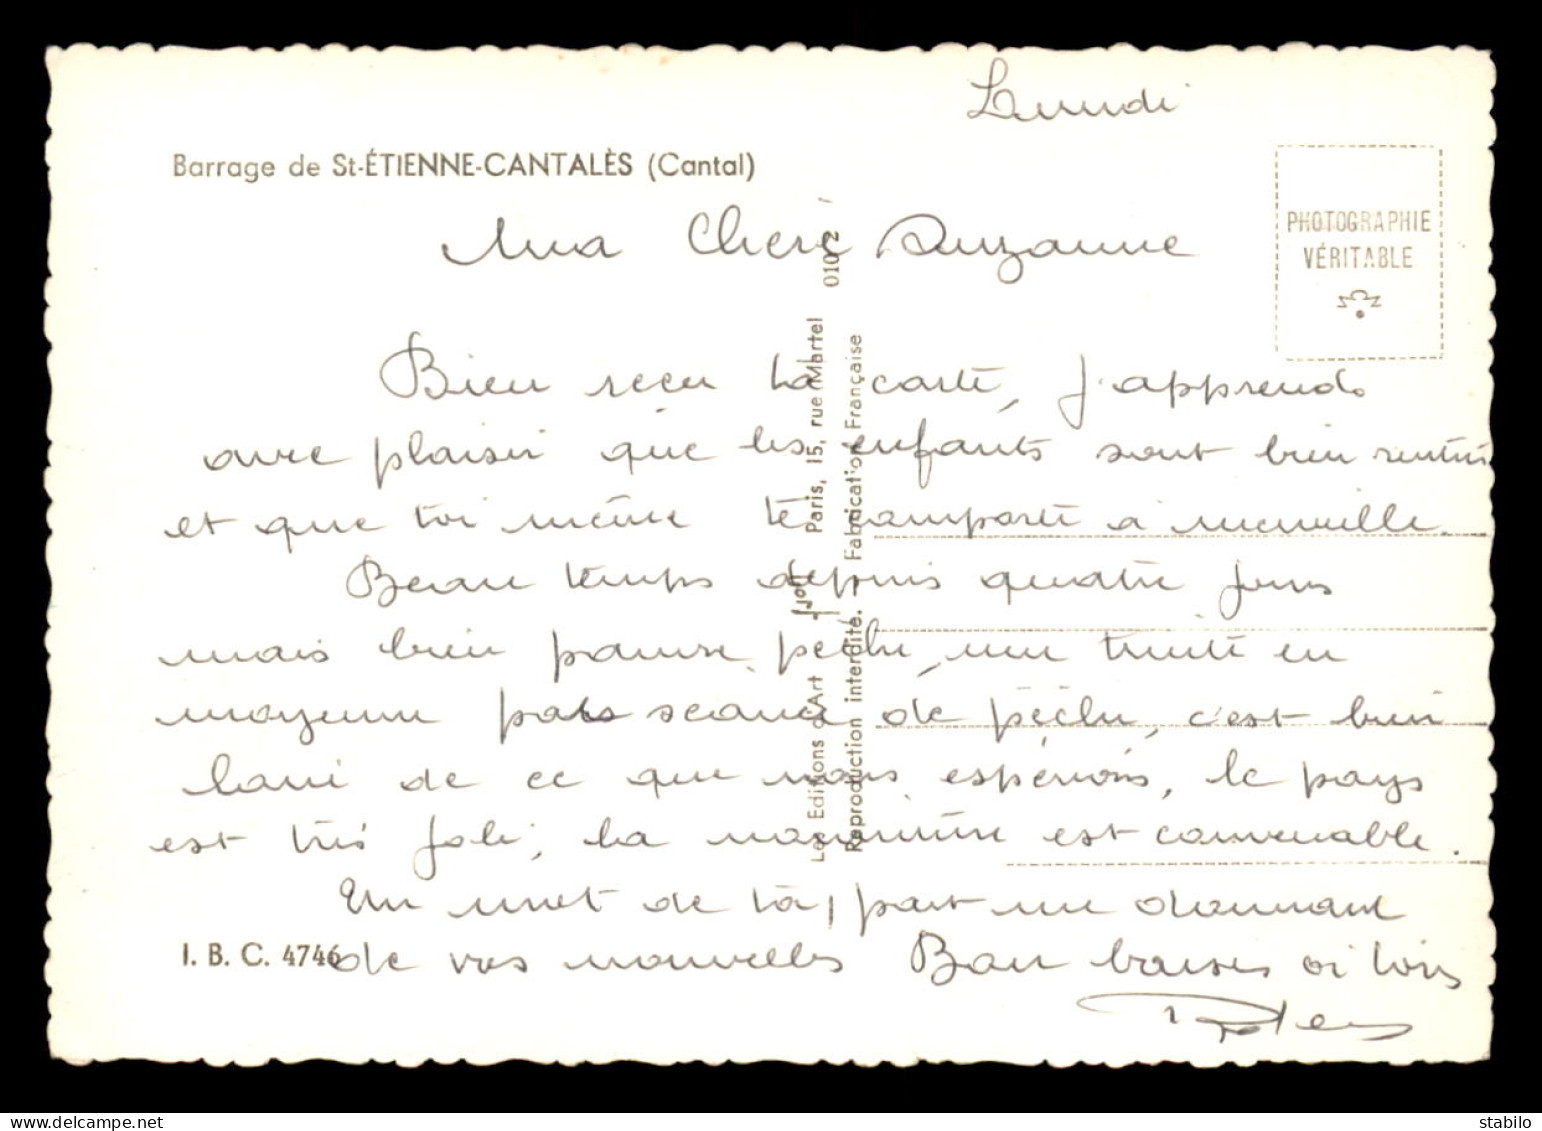 Lundi
Barrage de St-ÉTIENNE-CANTALÈS (Cantal)
PHOTOGRAPHIE
VÉRITABLE
Ma Chère Suzanne
Bien reçu ta carte, j'apprends
avec plaisir que les enfants sont bien rentrés
et que toi même te comporte à merveille.
Beau temps depuis quatre jours
mais bien pauvre pêche, une truite en
moyenne par séance de pêche, c'est bien
loin de ce que nous espérions, le pays
est très joli, la nourriture est convenable.
Un mot de ta part me donnant
de vos nouvelles Bon baises à tous
I. B. C. 4746
Les Editions d'Art Paris, 15, rue Martel
Reproduction interdite. Fabrication Française